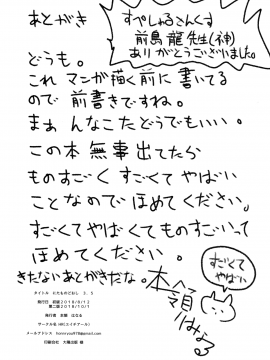 あとがき
すぺしゃるさんくす
前島 龍先生(神)
ありがとうございました。
どうも。
これ マンガ描く前に書いてる
ので前書きですね。
まぁ んなこたどうでもいい。
この本 無事出てたら
ものすごくすごくてやばい
ことなのでほめてください。
すごくてやばくてものすごいって
ほめてください。
きたないあとがきだな。
すごくて
やばい
本領はなる
発行日 初版2018/8/12
第二版2018/10/1
発行者 本領 はなる
メールアドレス
印刷会社 大陽出版 様